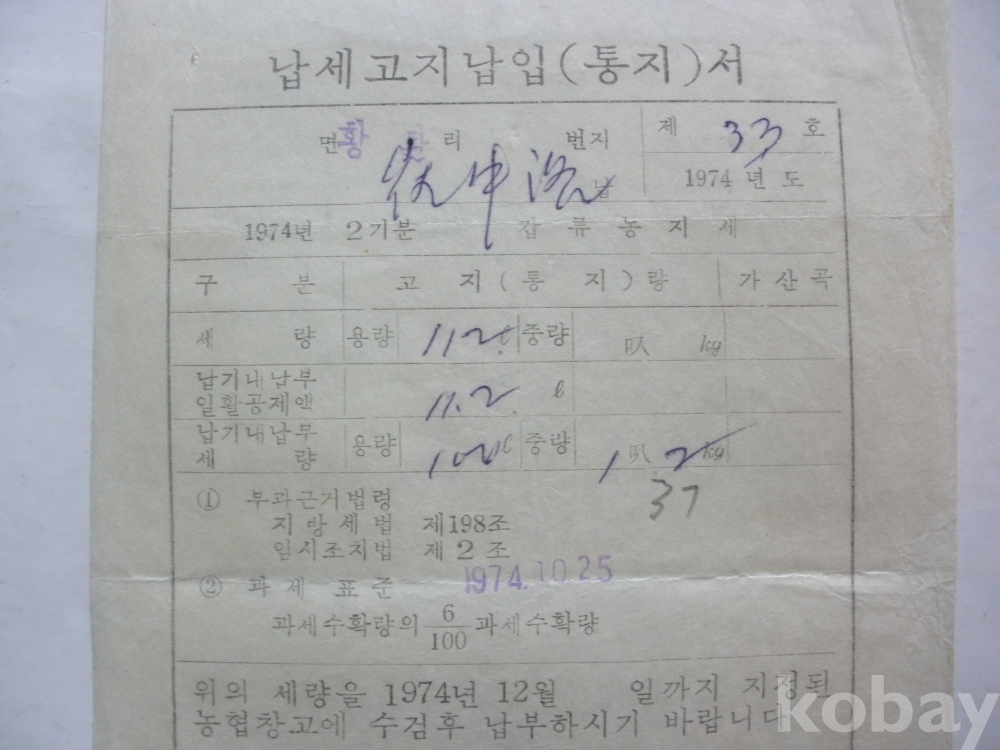 납세고지납입(통지)서
면 황 리 번지
제 33 호
1974 년 도
1974년 2기분 갑류농지세
구 분 고 지 ( 통 지 ) 량 가산곡
세 량 용량 112 ℓ 중량 叺 kg
납기내납부
일활공제액 11.2 ℓ
납기내납부
세 량 용량 100 ℓ 중량 1 叺 2 kg
37
① 부과근거법령
지방세법 제198조
임시조치법 제 2 조
② 과 세 표 준 1974.10.25
과세수확량의 6/100 과세수확량
위의 세량을 1974년 12월 일까지 지정된
농협창고에 수검후 납부하시기 바랍니다
kobay